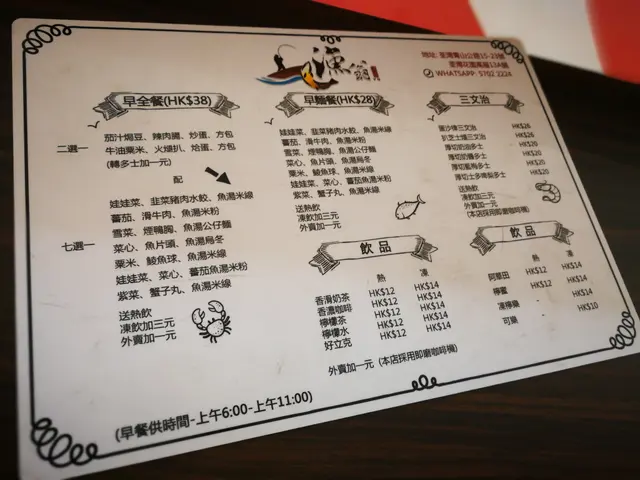 漁翁
地址: 荃灣青山公路15-23號
荃灣花園萬服13A號
WHATSAPP: 5702 2224
早全餐(HK$38)
二選一
茄汁焗豆、辣肉腸、炒蛋、方包
牛油粟米、火腿扒、烚蛋、方包
(轉多士加一元)
配
七選一
娃娃菜、韮菜豬肉水餃、魚湯米線
蕃茄、滑牛肉、魚湯米粉
雪菜、煙鴨胸、魚湯公仔麵
菜心、魚片頭、魚湯烏冬
粟米、鯪魚球、魚湯米線
娃娃菜、菜心、蕃茄魚湯米粉
紫菜、蟹子丸、魚湯米線
送熱飲
凍飲加三元
外賣加一元
(早餐供時間-上午6:00-上午11:00)
早麵餐(HK$28)
娃娃菜、韮菜豬肉水餃、魚湯米線
蕃茄、滑牛肉、魚湯米粉
雪菜、煙鴨胸、魚湯公仔麵
菜心、魚片頭、魚湯烏冬
粟米、鯪魚球、魚湯米線
娃娃菜、菜心、蕃茄魚湯米粉
紫菜、蟹子丸、魚湯米線
送熱飲
凍飲加三元
外賣加一元
三文治
蛋沙律三文治 HK$26
扒芝士爐三文治 HK$26
厚切奶油多士 HK$20
厚切奶醬多士 HK$20
厚切藍莓多士 HK$20
厚切士多啤梨多士 HK$20
送熱飲
凍飲加三元
外賣加一元
(本店採用即磨咖啡機)
飲品
熱 凍
香滑奶茶 HK$12 HK$14
香濃咖啡 HK$12 HK$14
檸檬茶 HK$12 HK$14
檸檬水 HK$12 HK$14
好立克 HK$12 HK$14
外賣加一元 (本店採用即磨咖啡機)
飲品
熱 凍
阿華田 HK$12 HK$14
檸蜜 HK$12 HK$14
凍檸樂 - HK$14
可樂 - HK$10